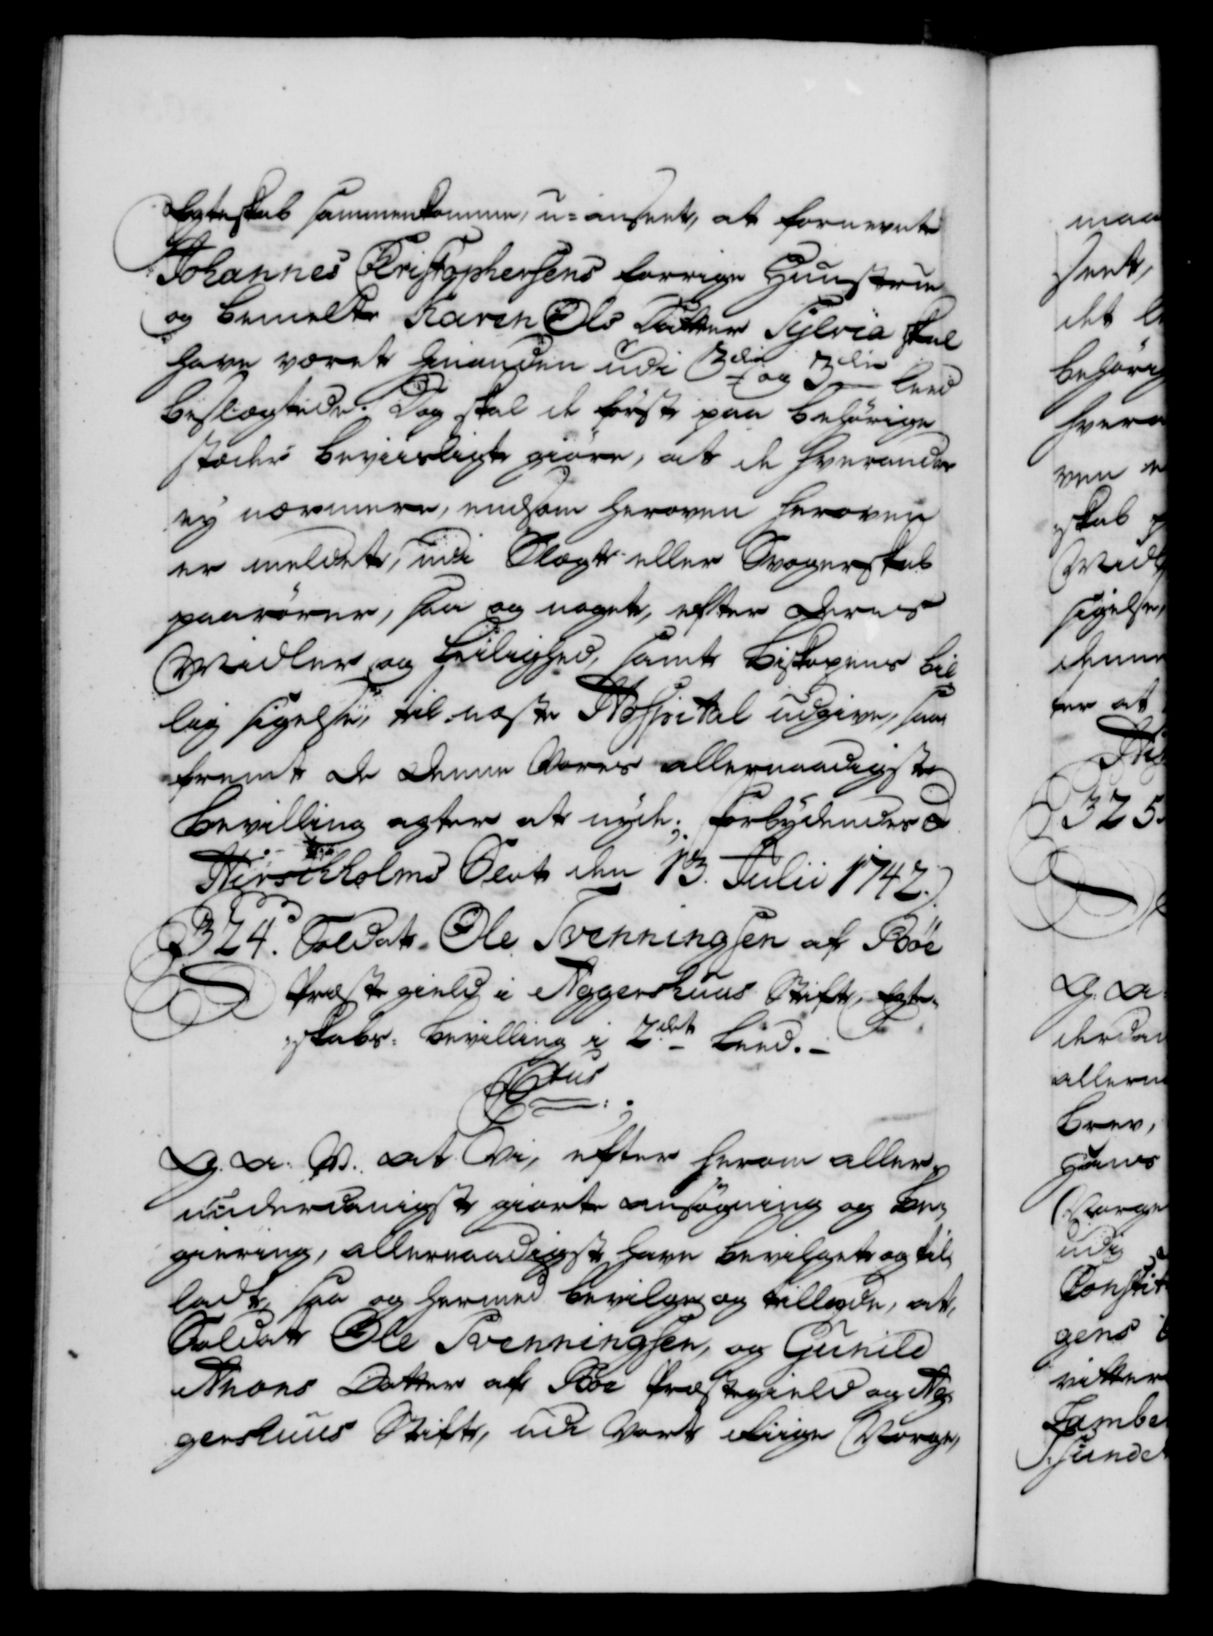 Egteskab sammenkomme, u-anseet, at fornevnte
Johannes Christophersens forrige Huustrue
og bemelte Karen Ols Datter Sylvia skal
have været hinanden udi 3die og 3die Leed
beslægtede. Dog skal de først paa behørige
stæder beviisligt giøre, at de hverandre
ej nærmere, end som heroven heroven
er meldet, udi Slægt eller Svogerskab
paarører, saa og noget, efter deres
Midler og Leilighed, samt Biskopens bil
lig sigelse, til næste Hospital udgive, saa
fremt de denne Vores allernaadigste
Bevilling agter at nyde. Forbydendes &
Hirschholms Slot den 13. Julii 1742.
324. Soldat Ole Svenningsen af Böe
Præstegield i Aggershuus Stift, Egte-
skabs-bevilling i 2det Leed.
Ctus
L. A. V. at Vi, efter herom aller
underdanigst giorte ansøgning og be
giering, allernaadigst have bevilget og til
ladt, saa og hermed bevilge og tillade, at
Soldat Ole Svenningsen, og Gunild
Anons Datter af Böe Præstegield og Ag
gershuus Stift, udi Vort Riige Norge,
maa
seet,
det
behørig
hvera
ven
skab
Midl
sigelse,
denne
ter at
325.
L. A.
derdan
allern
brev,
Hans
Norge
udi
Constit
gens
vitter
Jambe
Sunde